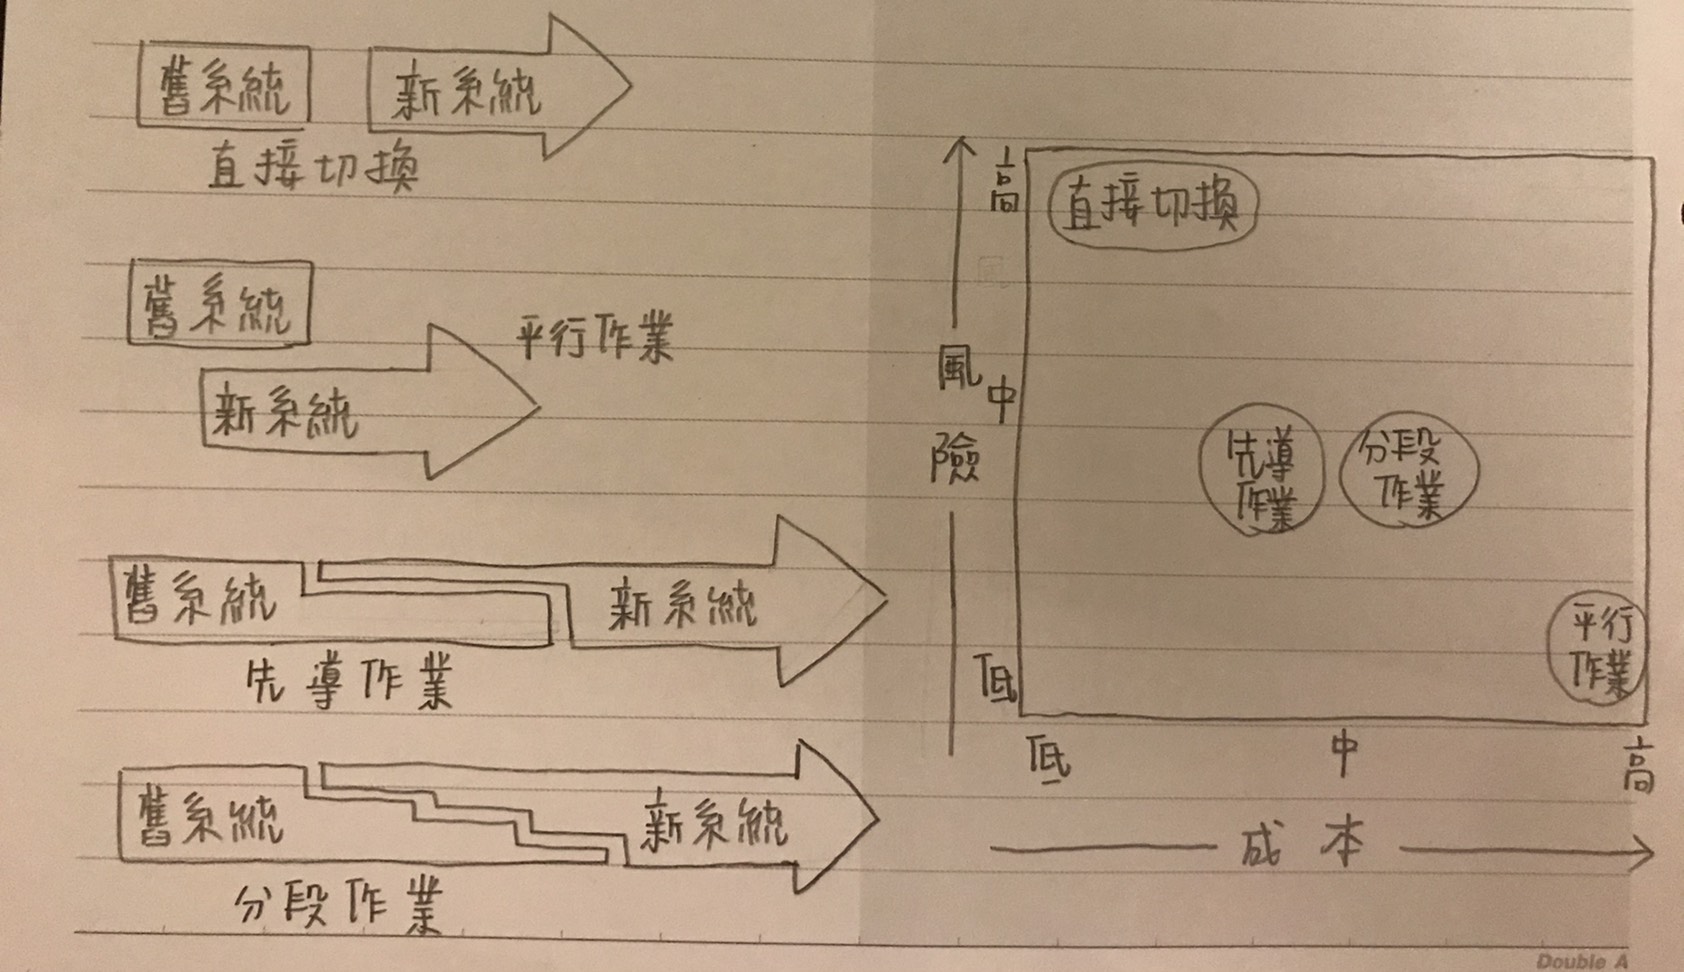 舊系統 新系統
直接切換
舊系統
平行作業
新系統
舊系統 新系統
先導作業
舊系統 新系統
分段作業
高
直接切換
風
中
險
先導
作業
分段
作業
平行
作業
低
低 中 高
成本
Double A